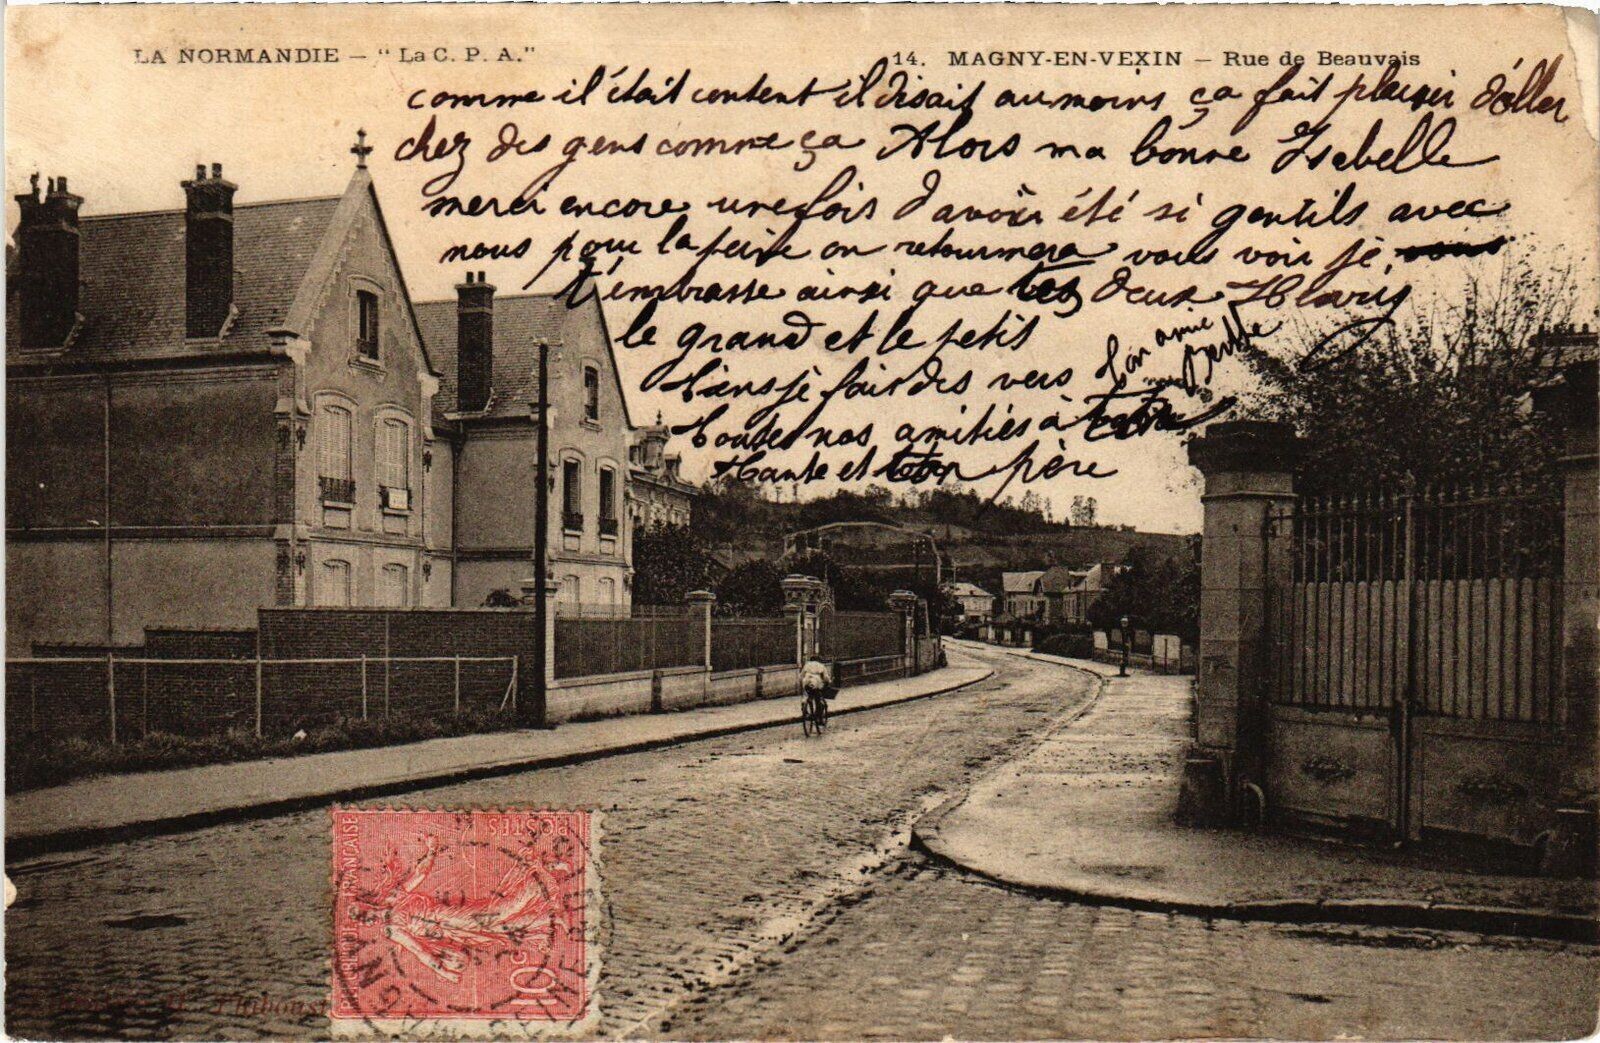 LA NORMANDIE — "La C. P. A."
14. MAGNY-EN-VEXIN — Rue de Beauvais
comme il était content il disait au moins ça fait plaisir d'aller
chez des gens comme ça Alors ma bonne Isabelle
merci encore une fois d'avoir été si gentils avec
nous pour la peine on retournera vous voir je vous
t'embrasse ainsi que les deux Henris
le grand et le petit
tiens je fais des vers
Ton amie
Berthe
toutes nos amitiés à
tante et ton père
POSTES
FRANÇAISE
10c